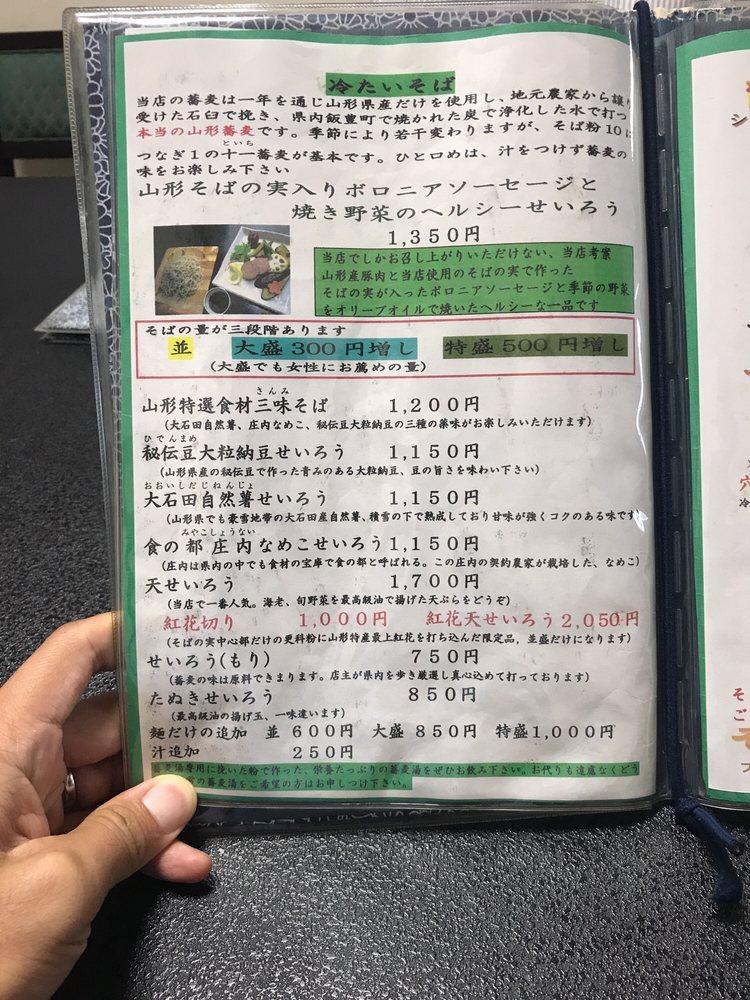 冷たいそば
当店の蕎麦は一年を通じ山形県産だけを使用し、地元農家から譲り
受けた石臼で挽き、県内飯豊町で焼かれた炭で浄化した水で打つ
本当の山形蕎麦です。季節により若干変わりますが、そば粉10に
といち
つなぎ1の十一蕎麦が基本です。ひと口めは、汁をつけず蕎麦の
味をお楽しみ下さい
山形そばの実入りボロニアソーセージと
焼き野菜のヘルシーせいろう
1,350円
当店でしかお召し上がりいただけない、当店考案
山形産豚肉と当店使用のそばの実で作った
そばの実が入ったボロニアソーセージと季節の野菜
をオリーブオイルで焼いたヘルシーな一品です
そばの量が三段階あります
並 大盛300円増し 特盛500円増し
(大盛でも女性にお薦めの量)
さんみ
山形特選食材三味そば 1,200円
(大石田自然薯、庄内なめこ、秘伝豆大粒納豆の三種の薬味がお楽しみいただけます)
ひでんまめ
秘伝豆大粒納豆せいろう 1,150円
(山形県産の秘伝豆で作った青みのある大粒納豆、豆の旨さを味わい下さい)
おおいしだじねんじょ
大石田自然薯せいろう 1,150円
(山形県でも豪雪地帯の大石田産自然薯、積雪の下で熟成しており甘味が強くコクのある味です
みやこしょうない
食の都庄内なめこせいろう1,150円
(庄内は県内の中でも食材の宝庫で食の都と呼ばれる。この庄内の契約農家が栽培した、なめこ)
天せいろう 1,700円
(当店で一番人気。海老、旬野菜を最高級油で揚げた天ぷらをどうぞ)
紅花切り 1,000円 紅花天せいろう2,050円
(そばの実中心部だけの更科粉に山形特産最上紅花を打ち込んだ限定品，並盛だけになります)
せいろう(もり) 750円
(蕎麦の味は原料できまります。店主が県内を歩き厳選し真心込めて打っております)
たぬきせいろう 850円
(最高級油の揚げ玉、一味違います)
麺だけの追加 並 600円 大盛 850円 特盛1,000円
汁追加 250円
蕎麦湯専用に挽いた粉で作った、栄養たっぷりの蕎麦湯をぜひお飲み下さい。お代りも遠慮なくどう
の蕎麦湯をご希望の方はお申しつけ下さい。